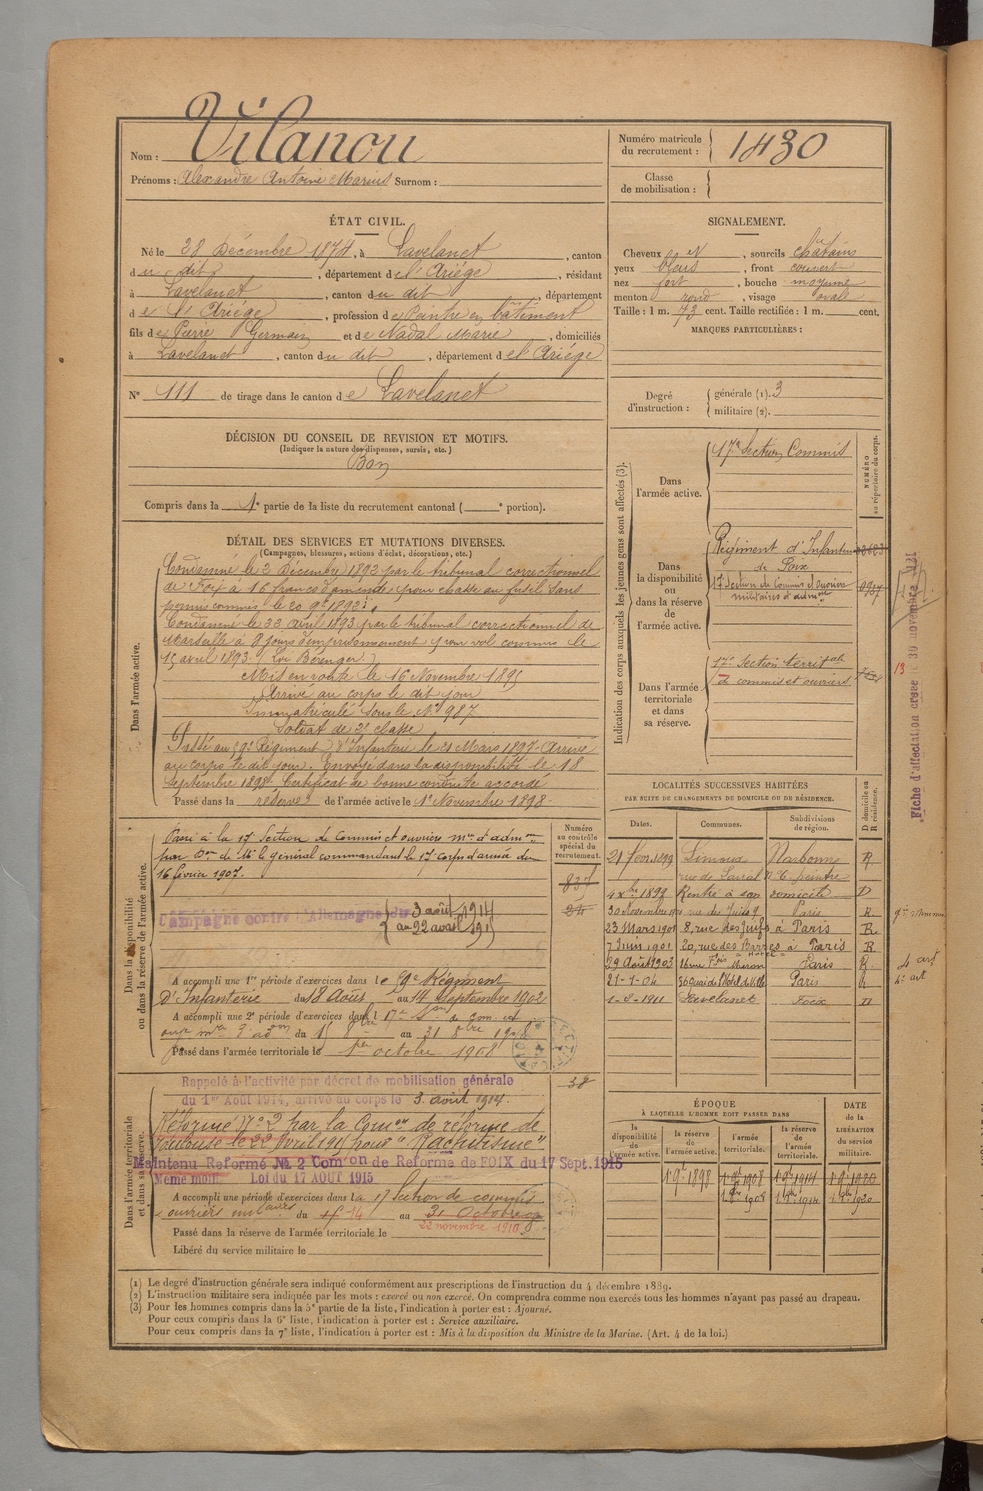 Nom : Vilanou
Prénoms : Alexandre Antoine Marius Surnom :
Numéro matricule du recrutement : 1430
Classe de mobilisation :
ÉTAT CIVIL.
Né le 28 Décembre 1874, à Lavelanet, canton
du dit, département de l'Ariége, résidant
à Lavelanet, canton du dit, département
de l'Ariége, profession de Peintre en bâtiment
fils de Pierre Germain et de Nadal Marie, domiciliés
à Lavelanet, canton du dit, département de l'Ariége
N° 111 de tirage dans le canton de Lavelanet
SIGNALEMENT.
Cheveux et, sourcils chatains
yeux bleus, front couvert
nez fort, bouche moyenne
menton rond, visage ovale
Taille : 1 m. 73 cent. Taille rectifiée : 1 m. cent.
MARQUES PARTICULIÈRES :
Degré d'instruction : générale (1). 3
militaire (2).
DÉCISION DU CONSEIL DE REVISION ET MOTIFS.
(Indiquer la nature des dispenses, sursis, etc.)
Bon
Compris dans la 1e partie de la liste du recrutement cantonal ( e portion).
DÉTAIL DES SERVICES ET MUTATIONS DIVERSES.
(Campagnes, blessures, actions d'éclat, décorations, etc.)
Dans l'armée active.
Condamné le 2 Décembre 1892 par le tribunal correctionnel
de Foix à 16 francs d'amende pour chasse au fusil sans
permis commis le 20 9bre 1892.
Condamné le 22 avril 1893 par le tribunal correctionnel de
Marseille à 8 jours d'emprisonnement pour vol commis le
15 avril 1893 (Loi Bérenger)
Mis en route le 16 Novembre 1895
Arrivé au corps le dit jour
Immatriculé sous le N° 987
Soldat de 2e classe
Passé au 59e Régiment d'Infanterie le 21 Mars 1897. Arrivé
au corps le dit jour. Envoyé dans la disponibilité le 18
Septembre 1898. Certificat de bonne conduite accordé
Passé dans la réserve de l'armée active le 1er Novembre 1898.
Indication des corps auxquels les jeunes gens sont affectés (3).
NUMÉRO au répertoire du corps.
Dans l'armée active.
17e Section Commis
Dans la disponibilité ou dans la réserve de l'armée active.
Régiment d'Infanterie
de Foix
17e Section de Commis et Ouvriers
militaires d'admon
Dans l'armée territoriale et dans sa réserve.
17e Section territale
de commis et ouvriers
Fiche d'affectation
LOCALITÉS SUCCESSIVES HABITÉES
PAR SUITE DE CHANGEMENTS DE DOMICILE OU DE RÉSIDENCE.
Dates. Communes. Subdivisions de région. D domicile ou R résidence.
21 févr. 1899 Limoux Narbonne R
4 xbre 1899 Rentré à son domicile D
30 Novembre 1900 rue des Juifs 9 Paris R
23 Mars 1901 8, rue des Juifs à Paris R
7 Juin 1901 20, rue des Barres à Paris R
29 Août 1903 Paris R
21-1-04 Quai de l'Hôtel de Ville Paris R
1-8-1911 Lavelanet Foix D
Dans la disponibilité ou dans la réserve de l'armée active.
Numéro au contrôle spécial du recrutement.
Passé à la 17e Section de Commis et ouvriers mres d'admon
par Don de Mr le général commandant le 17e corps d'armée du
16 février 1907.
837
24
Campagne contre l'Allemagne du 3 août 1914
au 22 avril 1915
A accompli une 1re période d'exercices dans le 59e Régiment
D'Infanterie du 18 Août au 14 Septembre 1902
A accompli une 2e période d'exercices dans la 17e Son de com. et
ouvr mres d'adon du 15 8bre au 31 8bre 1908
Passé dans l'armée territoriale le 1er octobre 1908
Dans l'armée territoriale et dans sa réserve.
38
Rappelé à l'activité par décret de mobilisation générale
du 1er Août 1914, arrivé au corps le 3 août 1914.
Réformé N° 2 par la Comon de réforme de
Toulouse le 22 Avril 1915 pour "Rachitisme"
Maintenu Reformé № 2 Comon de Reforme de FOIX du 17 Sept. 1915
Même motif Loi du 17 AOUT 1915
A accompli une période d'exercices dans la 17 Section de commis
ouvriers militaires du 14 au 31 Octobre
22 novembre 1910
Passé dans la réserve de l'armée territoriale le
Libéré du service militaire le
ÉPOQUE
À LAQUELLE L'HOMME DOIT PASSER DANS
DATE DE LA LIBÉRATION du service militaire.
la disponibilité de l'armée active. la réserve de l'armée active. l'armée territoriale. la réserve de l'armée territoriale.
(1) Le degré d'instruction générale sera indiqué conformément aux prescriptions de l'instruction du 4 décembre 1889.
(2) L'instruction militaire sera indiquée par les mots : exercé ou non exercé. On comprendra comme non exercés tous les hommes n'ayant pas passé au drapeau.
(3) Pour les hommes compris dans la 5e partie de la liste, l'indication à porter est : Ajourné.
Pour ceux compris dans la 6e liste, l'indication à porter est : Service auxiliaire.
Pour ceux compris dans la 7e liste, l'indication à porter est : Mis à la disposition du Ministre de la Marine. (Art. 4 de la loi.)